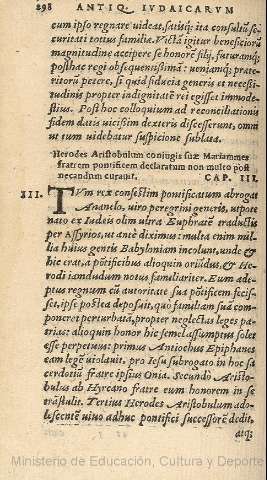 298 ANTIQ. IVDAICARVM
eum ipso regnare uideat, satisq́; ita consultū se-
curitati totius familiæ. Victā igitur beneficiorū
magnitudine accipere se honorē filij, futuramq́;
posthac regi obsequentißimā: ueniamq́; præte-
ritorū petere, si quid fiducia generis et necessi-
dinis propter indignitatē rei egisset immode-
stius. Post hoc colloquium ad reconciliationis
fidem datis uicißim dextris discesserunt, omni
ut tum uidebatur suspicione sublata.
Herodes Aristobulum coniugis suæ Mariammes
fratrem pontificem declaratum non multo post
necandum curauit. CAP. III.
III. TVM rex confestim pontificatum abrogat
Ananelo, uiro peregrini generis, utpote
nato ex Iudæis olim ultra Euphratē traductis
per Assyrios, ut antè diximus: multa enim mil-
lia huius gentis Babyloniam incolunt, unde &
hic erat, à põtificibus alioquin oriũdus, & He-
rodi iamdudum notus familiariter. Eum ade-
ptus regnum cū autoritate sua põtificem fecis-
set, ipse postea deposuit, quò familiam suã com-
poneret perturbatã, propter neglectas leges pa-
trias: alioquin honor hic semel assumptus solet
esse perpetuus: primus Antiochus Epiphanes
eam legē uiolauit, pro Iesu subrogato in hoc sa
cerdotiū fratre ipsius Onia. Secundo Aristo-
bulus ab Hyrcano fratre eum honorem in se
trãstulit. Tertius Herodes Aristobulum ado-
lescentē uiuo adhuc pontifici successorē dedit,
atq́;
Ministerio de Educación, Cultura y Deporte